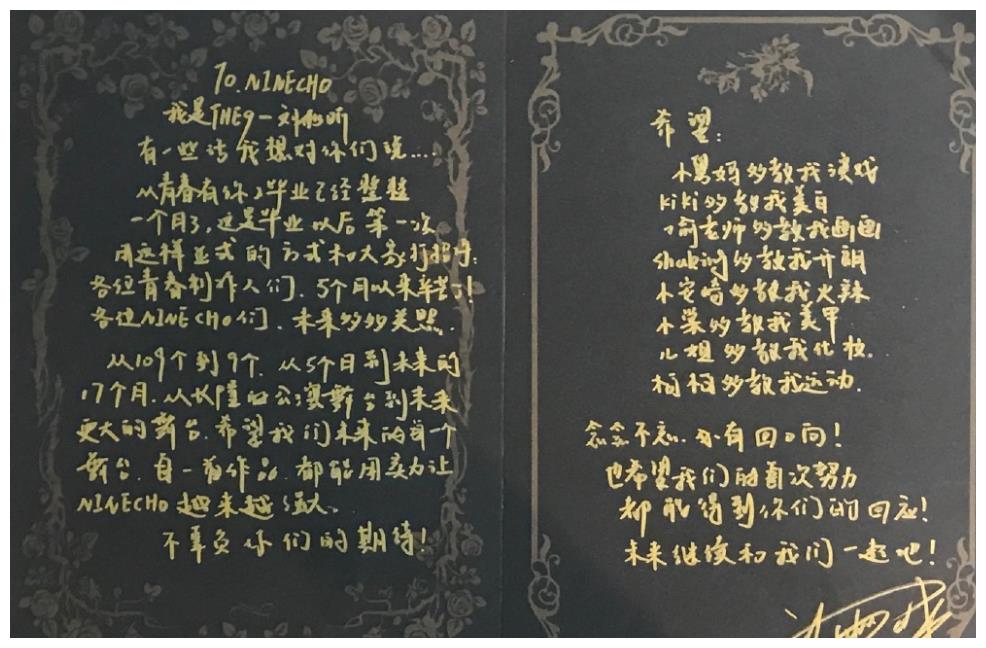 TO.NINECHO
我是THE9-刘雨昕
有一些话我想对你们说...:
从青春有你2毕业已经整整
一个月了,这是毕业以后第一次
用这样正式的方式和大家打招呼:
各位青春制作人们,5个月以来辛苦了!
各位NINECHO们,未来多多关照.
从109个到9个,从5个月到未来的
17个月.从长隆的公演舞台到未来
更大的舞台.希望我们未来的每一个
舞台.每一首作品.都能用实力让
NINECHO越来越强大.
不辜负你们的期待!
希望:
小舅妈多教我演戏
kiki多教我美白
喻老师多教我画画
shaking多教我开朗
小安崎多教我火辣
小棠多教我美甲
儿姐多教我化妆.
栢栢多教我运动.
念念不忘.必有回响!
也希望我们的每次努力
都能得到你们的回应!
未来继续和我们一起吧!